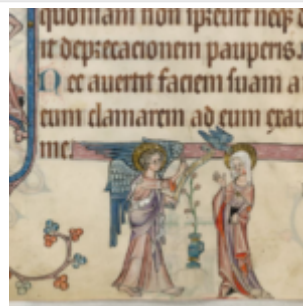 quoniam non spreuit neq
it deprecacionem pauperis.
Nec auertit faciem suam a
cum clamarem ad eum exau
me.